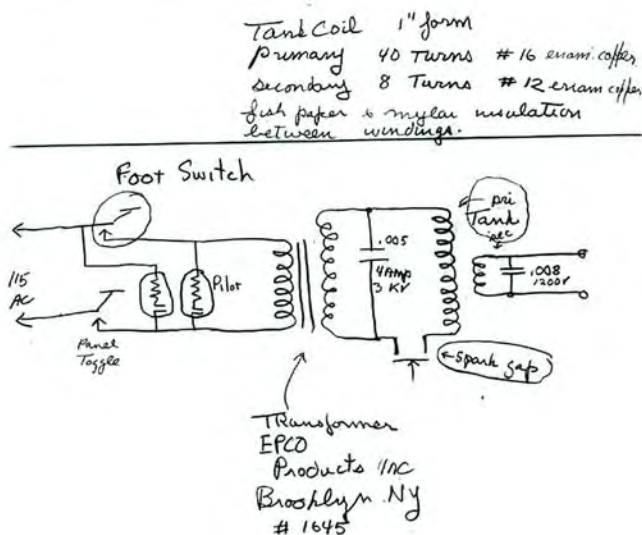 Tank Coil 1" form
primary 40 Turns # 16 enam. copper
secondary 8 Turns # 12 enam copper
fish paper & mylar insulation
between windings.
Foot Switch
115
AC
Panel
Toggle
Pilot
.005
4 Amp
3 KV
pri
Tank
sec
.008
1200V
Spark gap
TRansformer
EPCO
Products INC
Brooklyn. NY
# 1645